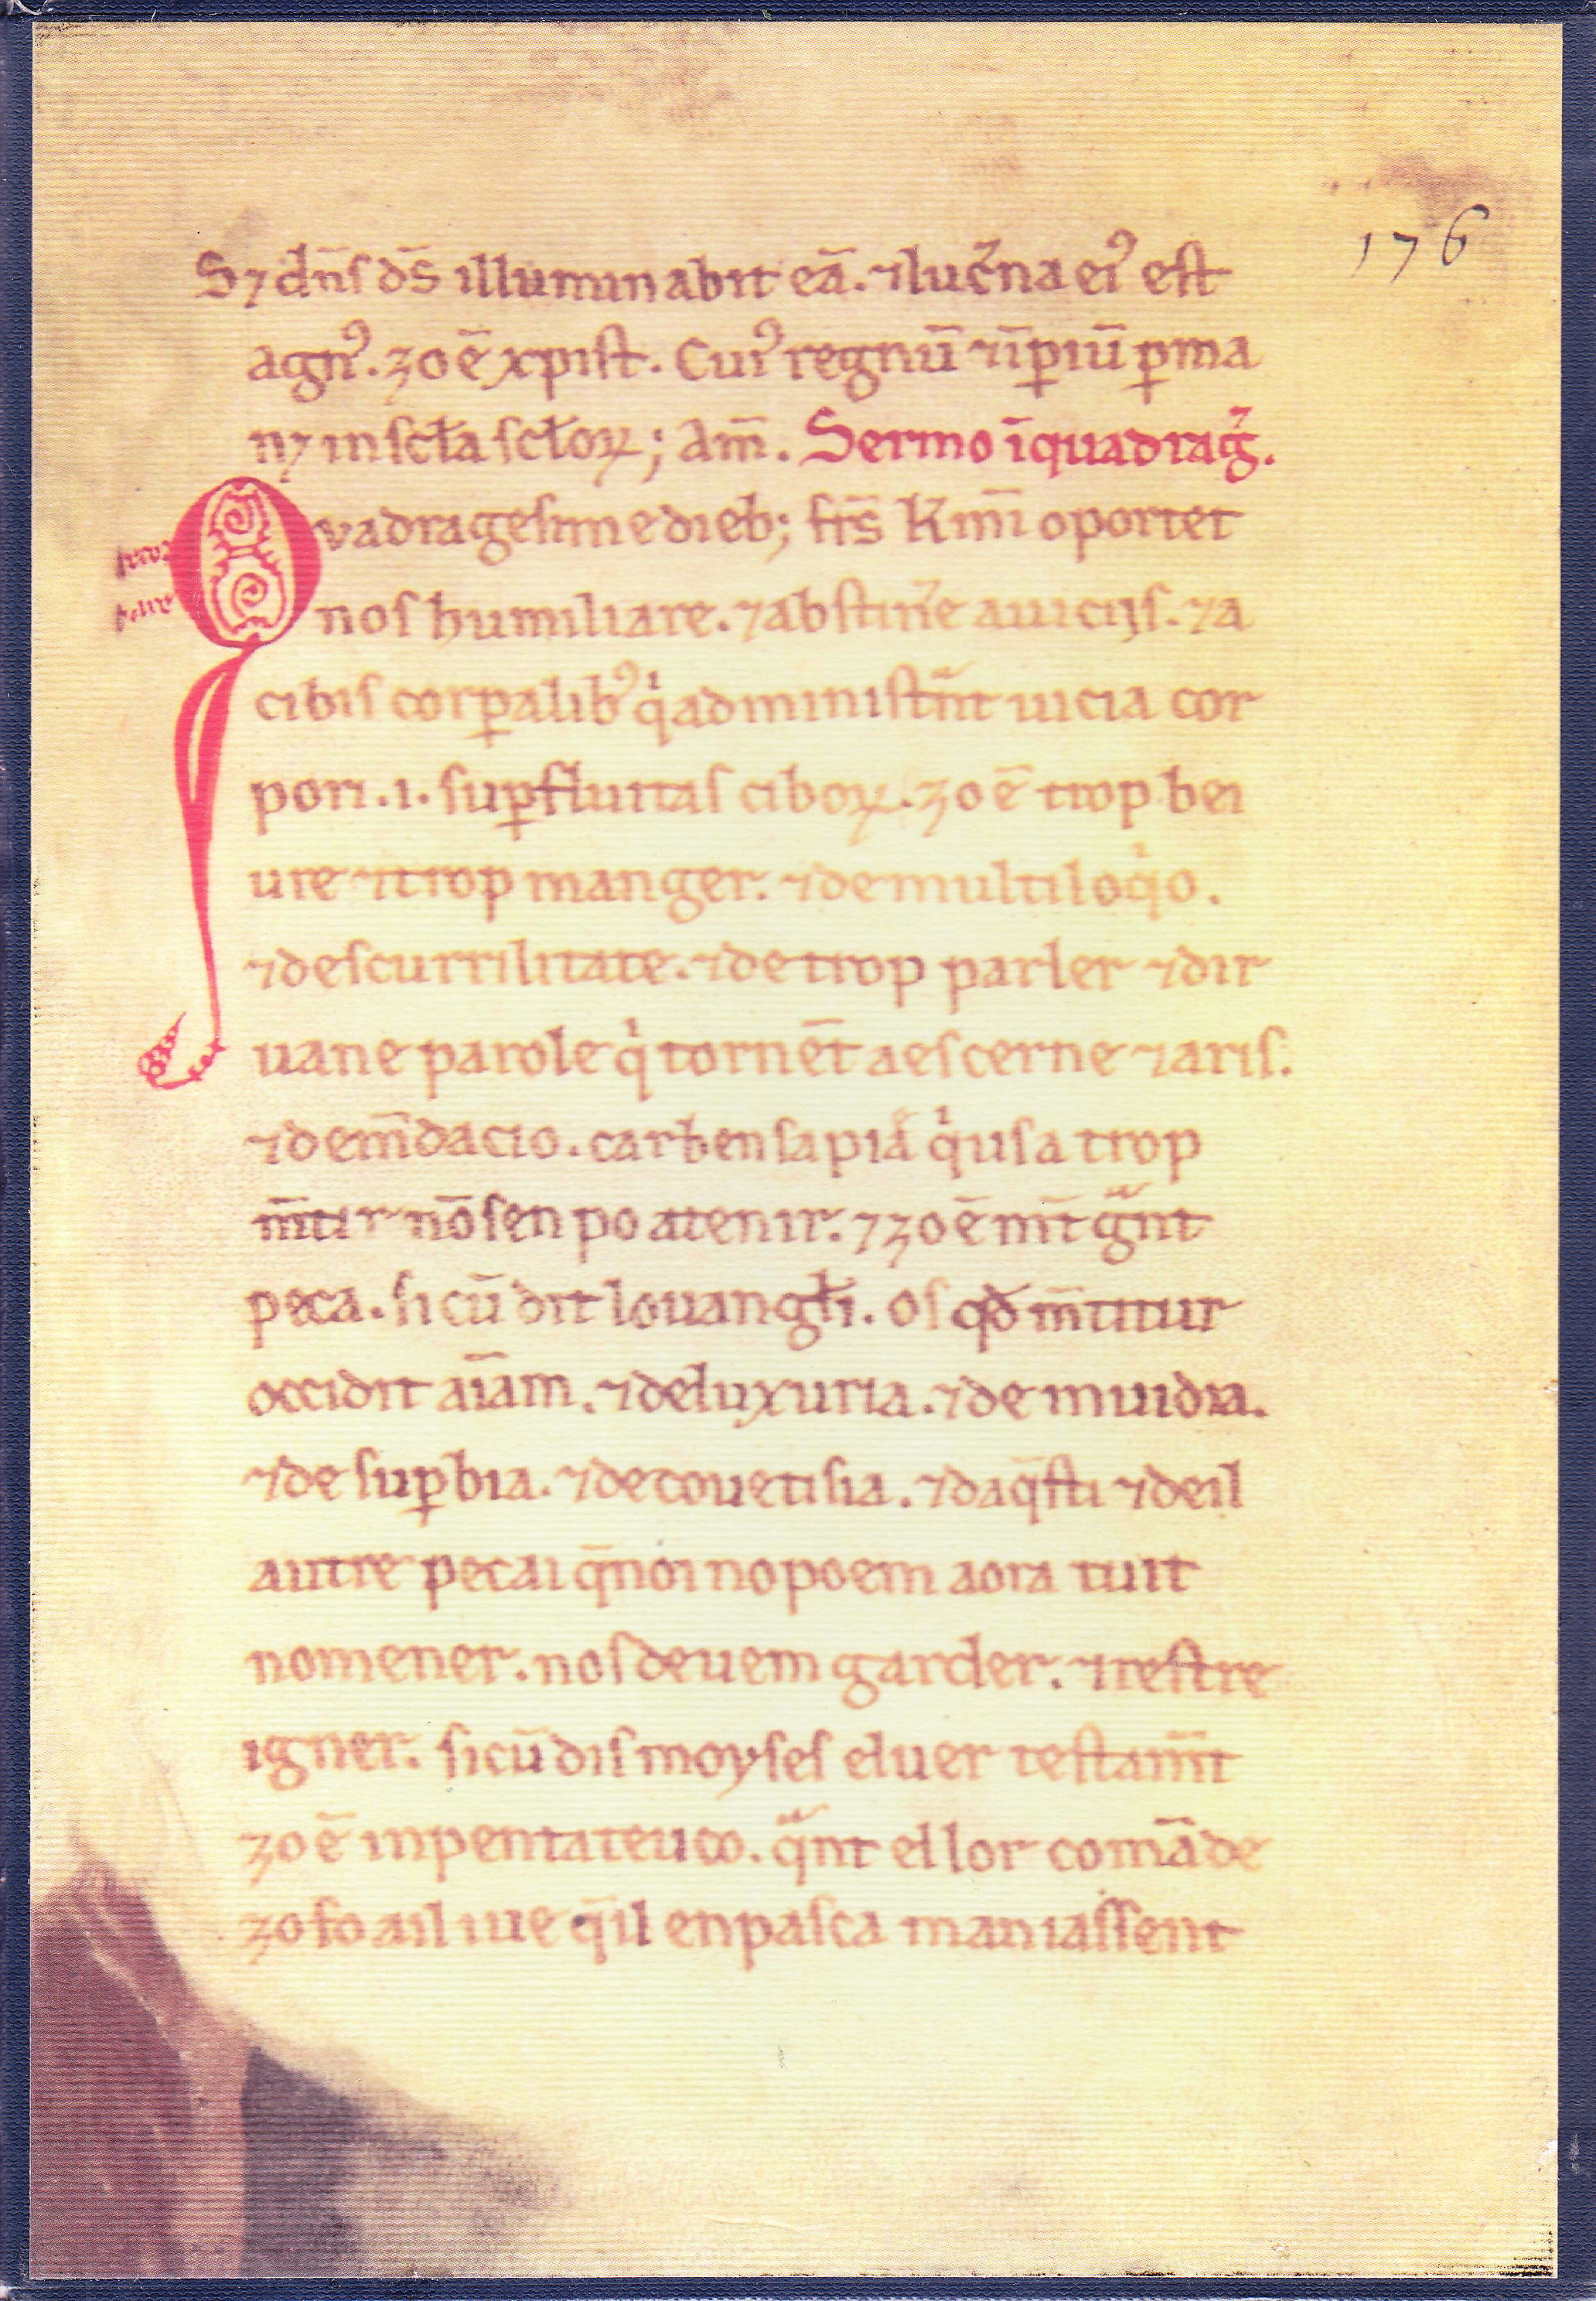 176
S⁊ dn̄s ds̄ illuminabit eā. ⁊ luc̄na eiꝰ est
agnꝰ. zo ē xpist. Cuiꝰ regnū ⁊ īꝑiū ꝑma
n⁊ in scła scłoꝝ; Am̄. Sermo ī quadrag̃.
Quadragesime dieb; frs̄ Km̄i oportet
nos humiliare. ⁊ abstin̄e a uiciis. ⁊ a
cibis corꝑalibꝰ qͥ administᵃnt uicia cor
pori .i. suꝑfluitas ciboꝝ. zo ē trop bei
ure ⁊ trop manger. ⁊ de multiloqͥo.
⁊ de scurrilitate. ⁊ de trop parler ⁊ dir
uane parole qͥ tornēt a escerne ⁊ a ris.
⁊ de m̄dacio. car ben sapiā qͥ usa trop
m̄tir nō sen po atenir. ⁊ zo ē mt̄ gᵃnt
peca. si cū dit lo uangłi. Os qđ m̄titur
occidit aīam. ⁊ de luxuria. ⁊ de inuidia.
⁊ de suꝑbia. ⁊ de couetisia. ⁊ daq̄sti ⁊ deil
autre pecai q̄ noi no poem aora tuit
nomener. nos deuem garder. ⁊ restre
igner. si cū dis moyses el uer testam̄t
zo ē in pentateuco. qᵃnt el lor comāde
zo fo ail iue q̄ il en pasca maniassent